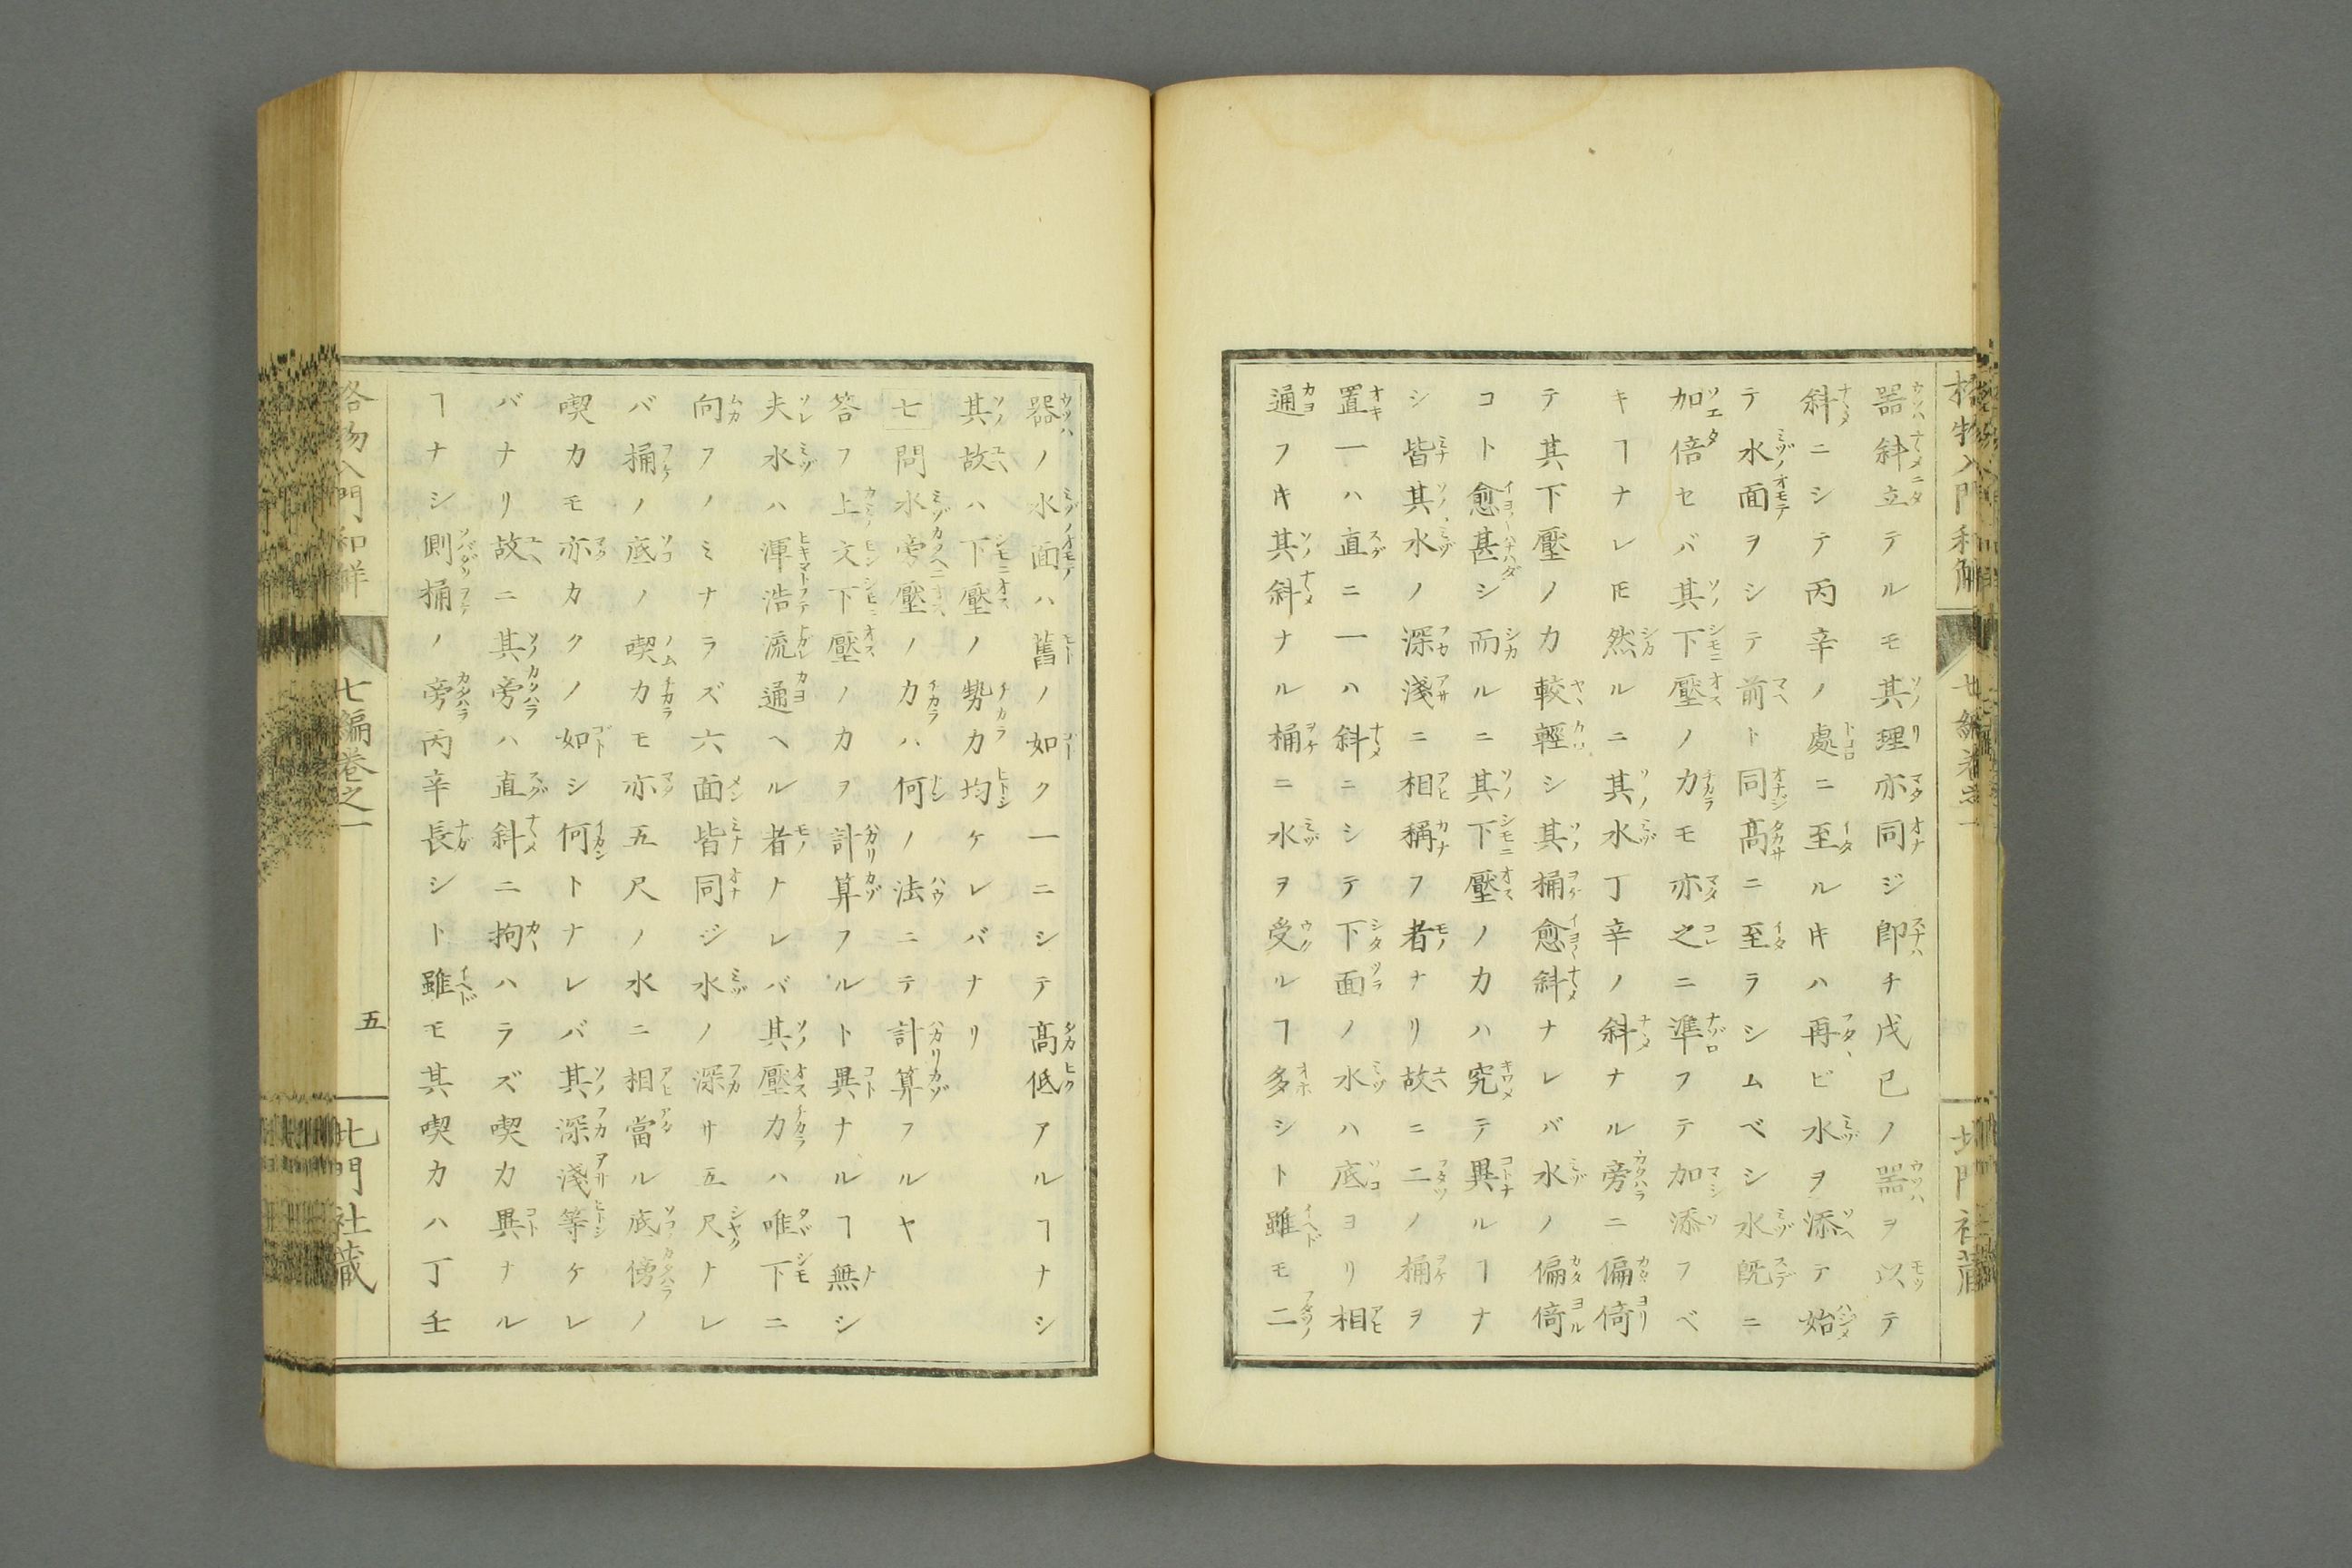 格物入門和解 七編卷之一 北門社藏
器斜立テルモ其理亦同ジ卽チ戊己ノ器ヲ以テ
斜ニシテ丙辛ノ處ニ至ルキハ再ビ水ヲ添テ始
テ水面ヲシテ前ト同高ニ至ラシムベシ水旣ニ
加倍セバ其下壓ノ力モ亦之ニ準フテ加添フベ
キヿナレ𪜈然ルニ其水丁辛ノ斜ナル旁ニ偏倚
テ其下壓ノ力較輕シ其桶愈斜ナレバ水ノ偏倚
コト愈甚シ而ルニ其下壓ノ力ハ究テ異ルヿナ
シ皆其水ノ深淺ニ相稱フ者ナリ故ニ二ノ桶ヲ
置一ハ直ニ一ハ斜ニシテ下面ノ水ハ底ヨリ相
通フキ其斜ナル桶ニ水ヲ受ルヿ多シト雖モ二
器ノ水面ハ舊ノ如ク一ニシテ高低アルヿナシ
其故ハ下壓ノ勢力均ケレバナリ
七 問水旁壓ノ力ハ何ノ法ニテ計算フルヤ
答フ上文下壓ノカヲ計算フルト異ナルヿ無シ
夫水ハ渾浩流通ヘル者ナレバ其壓力ハ唯下ニ
向フノミナラズ六面皆同ジ水ノ深サ五尺ナレ
バ桶ノ底ノ喫力モ亦五尺ノ水ニ相當ル底傍ノ
喫力モ亦カクノ如シ何トナレバ其深淺等ケレ
バナリ故ニ其旁ハ直斜ニ拘ハラズ喫力異ナル
ヿナシ側桶ノ旁丙辛長シト雖モ其喫力ハ丁壬
格物入門和解 七編卷之一 五 北門社藏